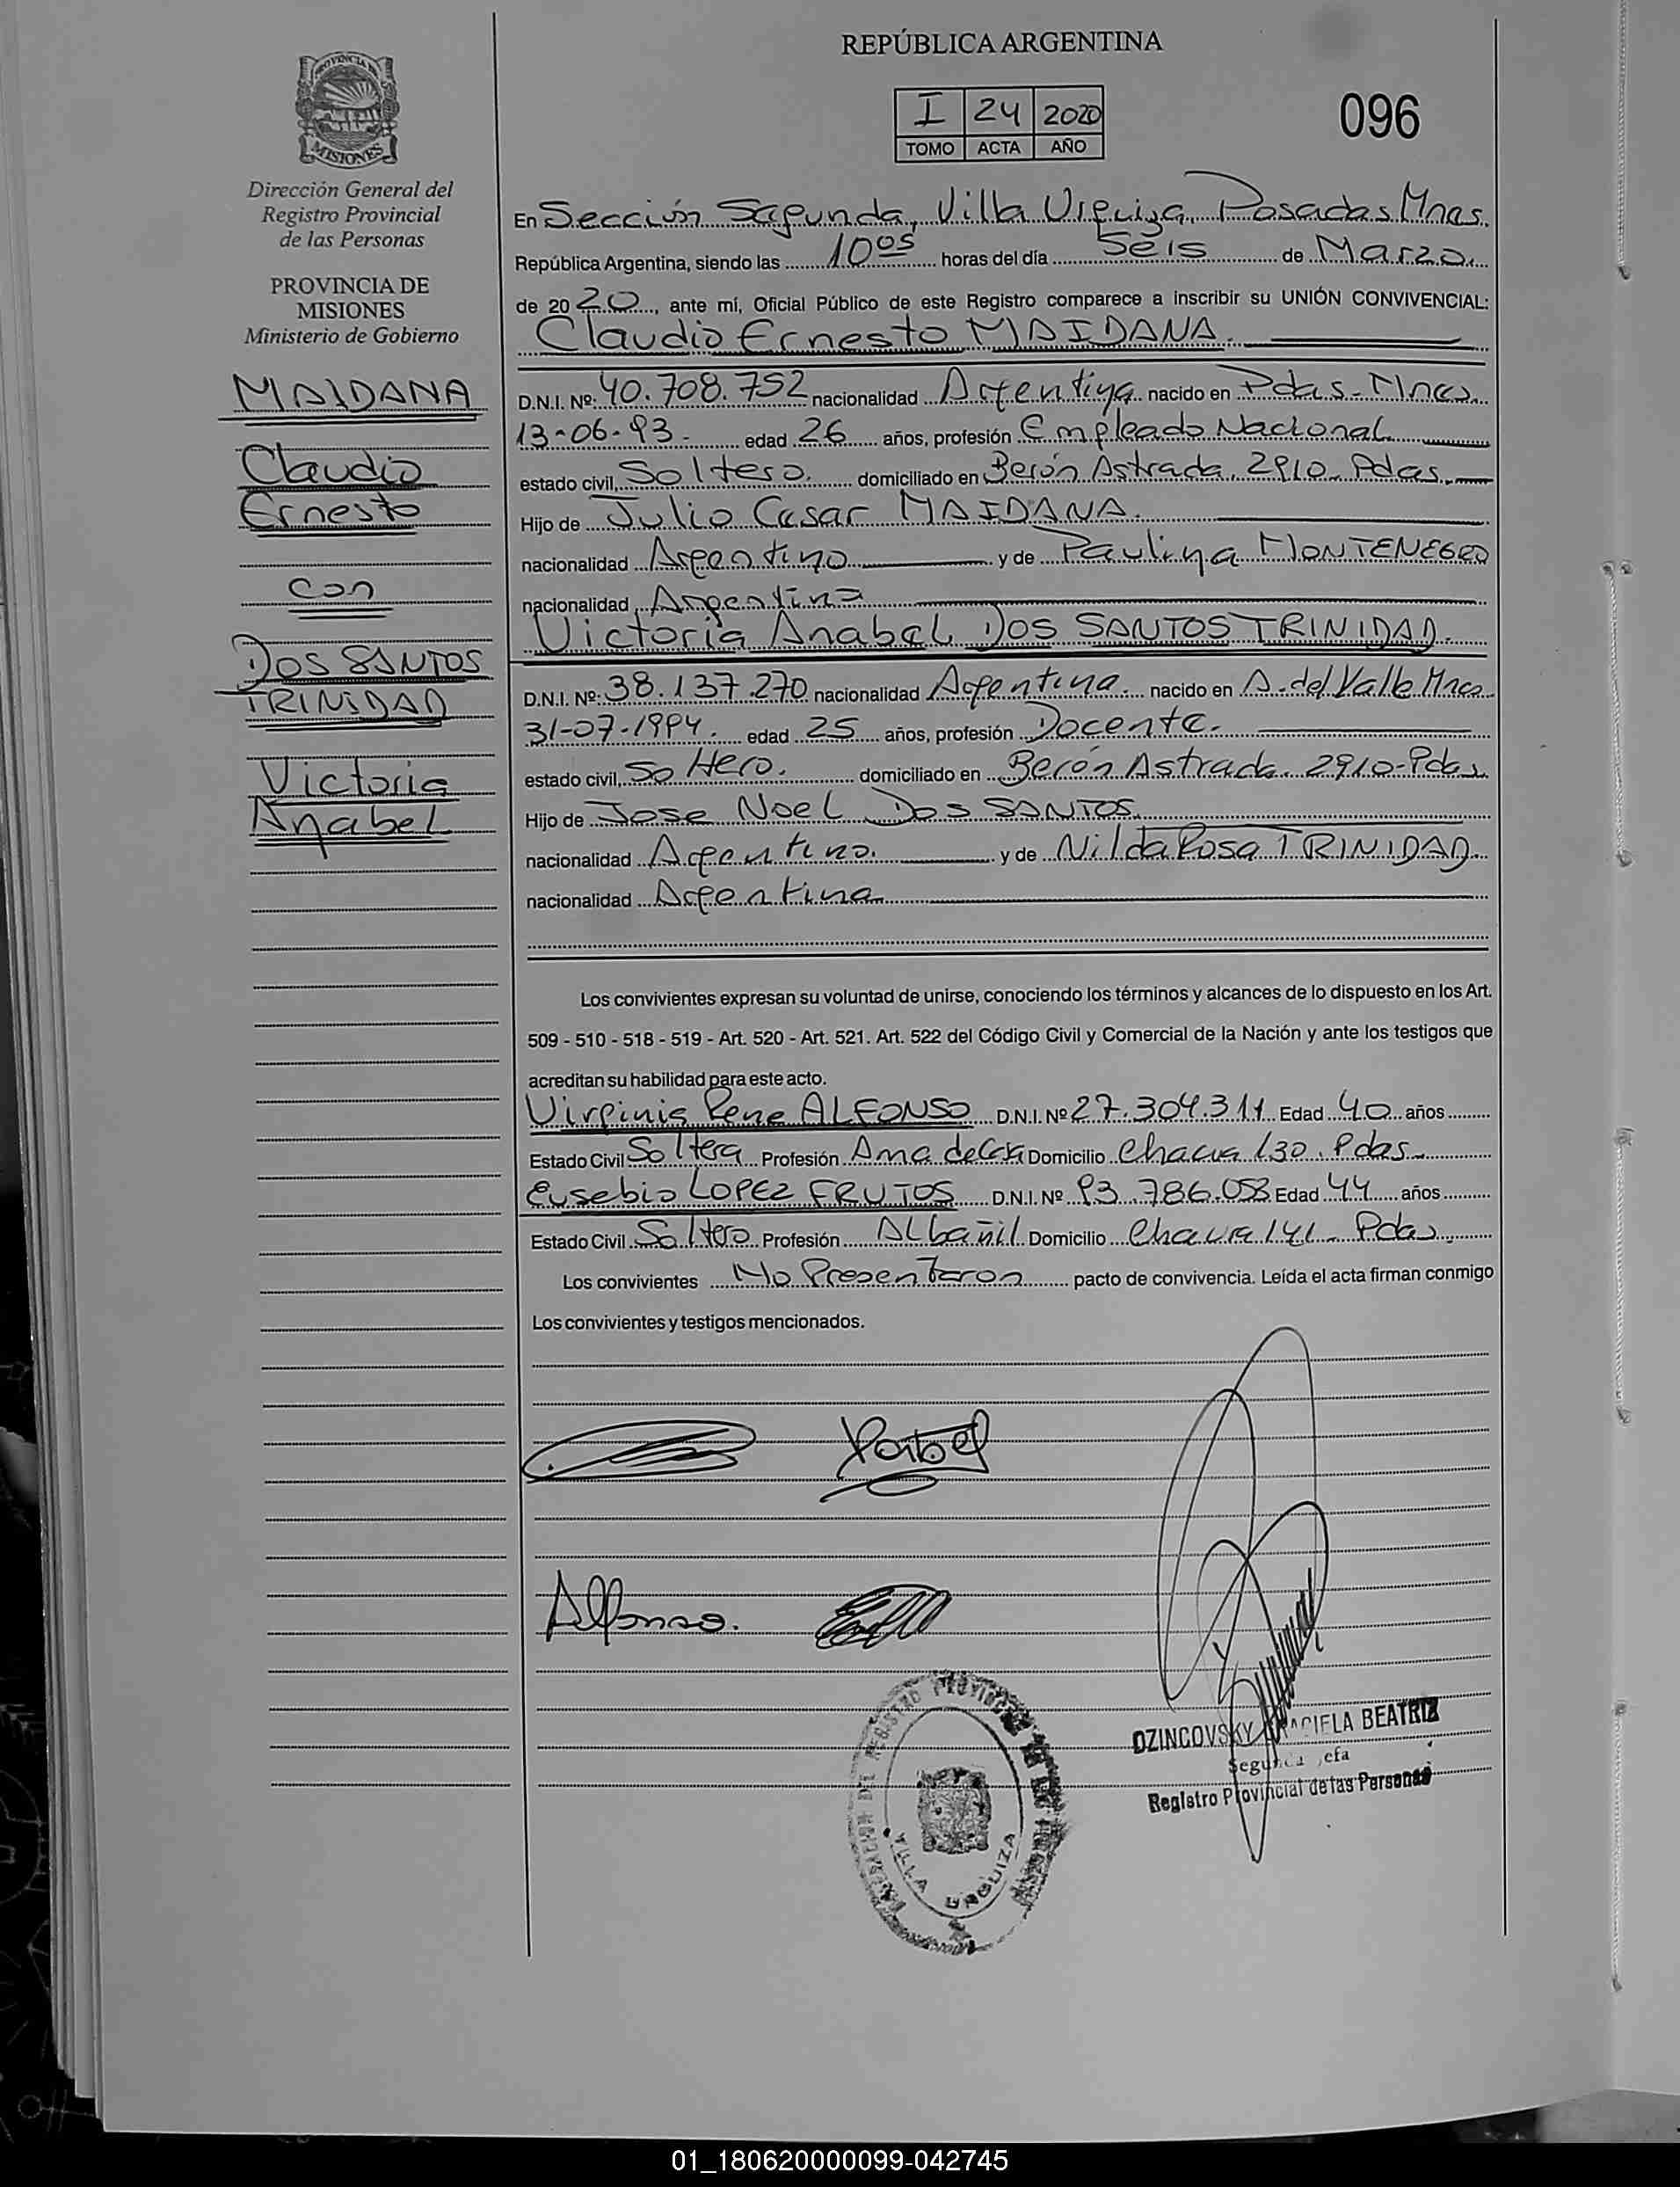 REPÚBLICA ARGENTINA
I 24 2020
TOMO ACTA AÑO
096
PROVINCIA DE
MISIONES
Dirección General del
Registro Provincial
de las Personas
PROVINCIA DE
MISIONES
Ministerio de Gobierno
MAIDANA
Claudio
Ernesto
con
DOS SANTOS
TRINIDAD
Victoria
Anabel
En Sección Segunda, Villa Urquiza, Posadas Mnes.
República Argentina, siendo las 10 05 horas del día Seis de Marzo
de 20 20, ante mí, Oficial Público de este Registro comparece a inscribir su UNIÓN CONVIVENCIAL:
Claudio Ernesto MAIDANA.
D.N.I. Nº: 40.708.752 nacionalidad Argentina nacido en Pdas-Mnes
13-06-93. edad 26 años, profesión Empleado Nacional
estado civil, Soltero. domiciliado en Berón Astrada 2910 Pdas
Hijo de Julio Cesar MAIDANA.
nacionalidad Argentino y de Paulina MONTENEGRO
nacionalidad Argentina
Victoria Anabel DOS SANTOS TRINIDAD.
D.N.I. Nº: 38.137.270 nacionalidad Argentina. nacido en A. del Valle Mnes
31-07-1994. edad 25 años, profesión Docente.
estado civil, Soltero. domiciliado en Berón Astrada 2910-Pdas
Hijo de Jose Noel DOS SANTOS
nacionalidad Argentino. y de Nilda Rosa TRINIDAD
nacionalidad Argentina
Los convivientes expresan su voluntad de unirse, conociendo los términos y alcances de lo dispuesto en los Art.
509 - 510 - 518 - 519 - Art. 520 - Art. 521. Art. 522 del Código Civil y Comercial de la Nación y ante los testigos que
acreditan su habilidad para este acto.
Virginia Rene ALFONSO D.N.I. Nº 27.304.311 Edad 40 años
Estado Civil Soltera Profesión Ama de Casa Domicilio 130. Pdas
Eusebio LOPEZ FRUTOS D.N.I. Nº 93.786.058 Edad 44 años
Estado Civil Soltero Profesión Albañil Domicilio 141 Pdas
Los convivientes No Presentaron pacto de convivencia. Leída el acta firman conmigo
Los convivientes y testigos mencionados.
Alfonso.
DEL REGISTRO PROVINCIAL
VILLA URQUIZA
OZINCOVSKY GRACIELA BEATRIZ
Segunda Jefa
Registro Provincial de las Personas
01_180620000099-042745